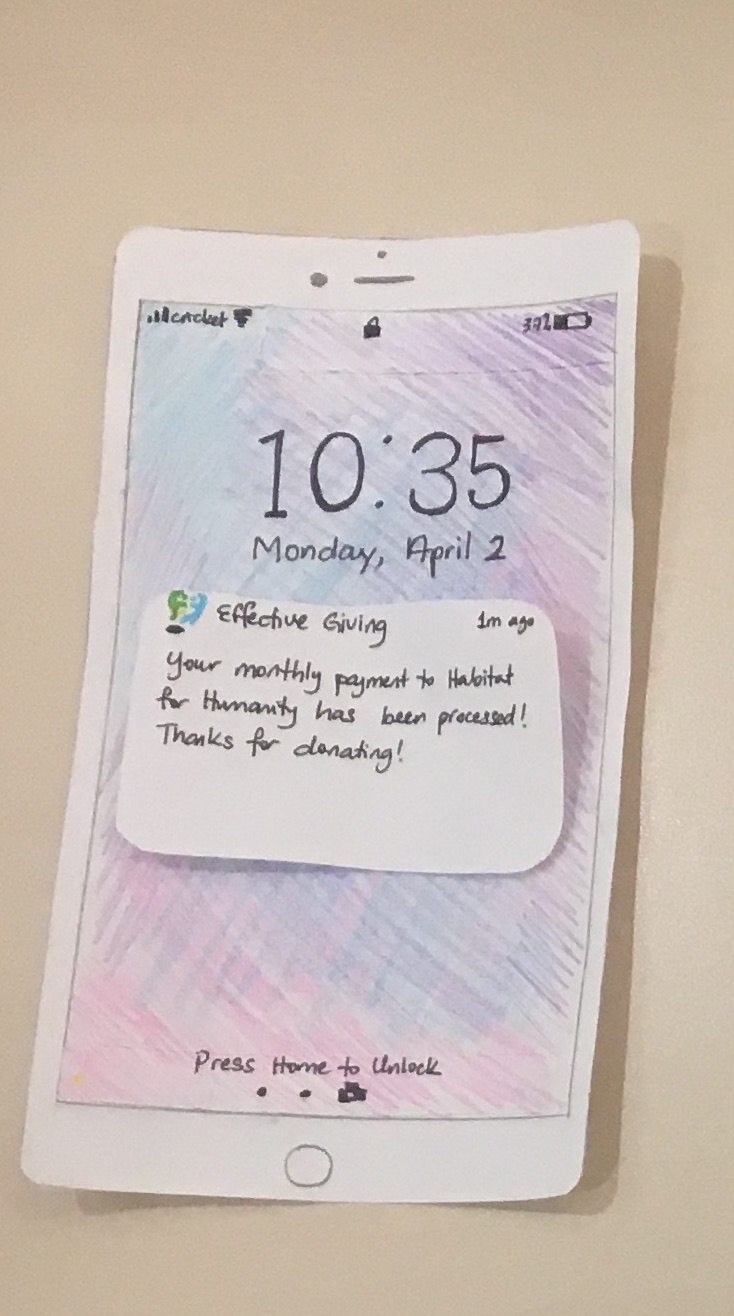 cricket
37%
10:35
Monday, April 2
Effective Giving 1m ago
Your monthly payment to Habitat
for Humanity has been processed!
Thanks for donating!
Press Home to Unlock